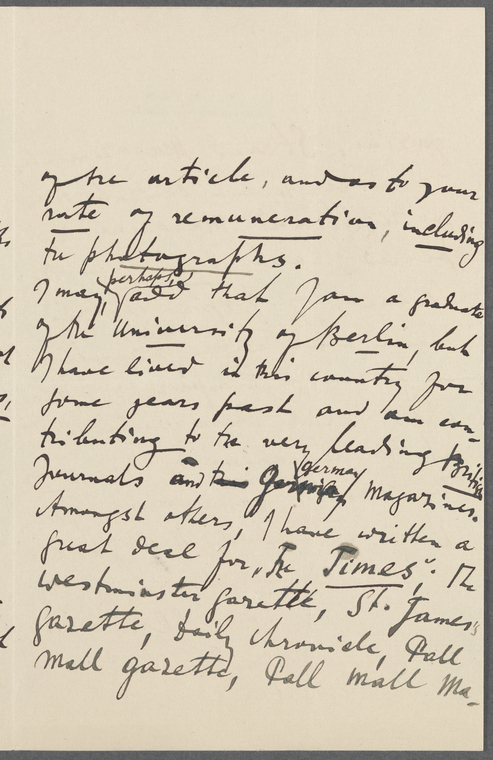 of the article, and as to your
rate of remuneration, including
the photographs.
I may, perhaps, add that I am a graduate
of the University of Berlin, but
I have lived in this country for
some years past and am con-
tributing to the very leading British
Journals and German Magazines.
Amongst others, I have written a
great deal for "The Times", The
Westminster gazette, St. James's
gazette, Daily Chronicle, Pall
Mall gazette, Pall Mall Ma-